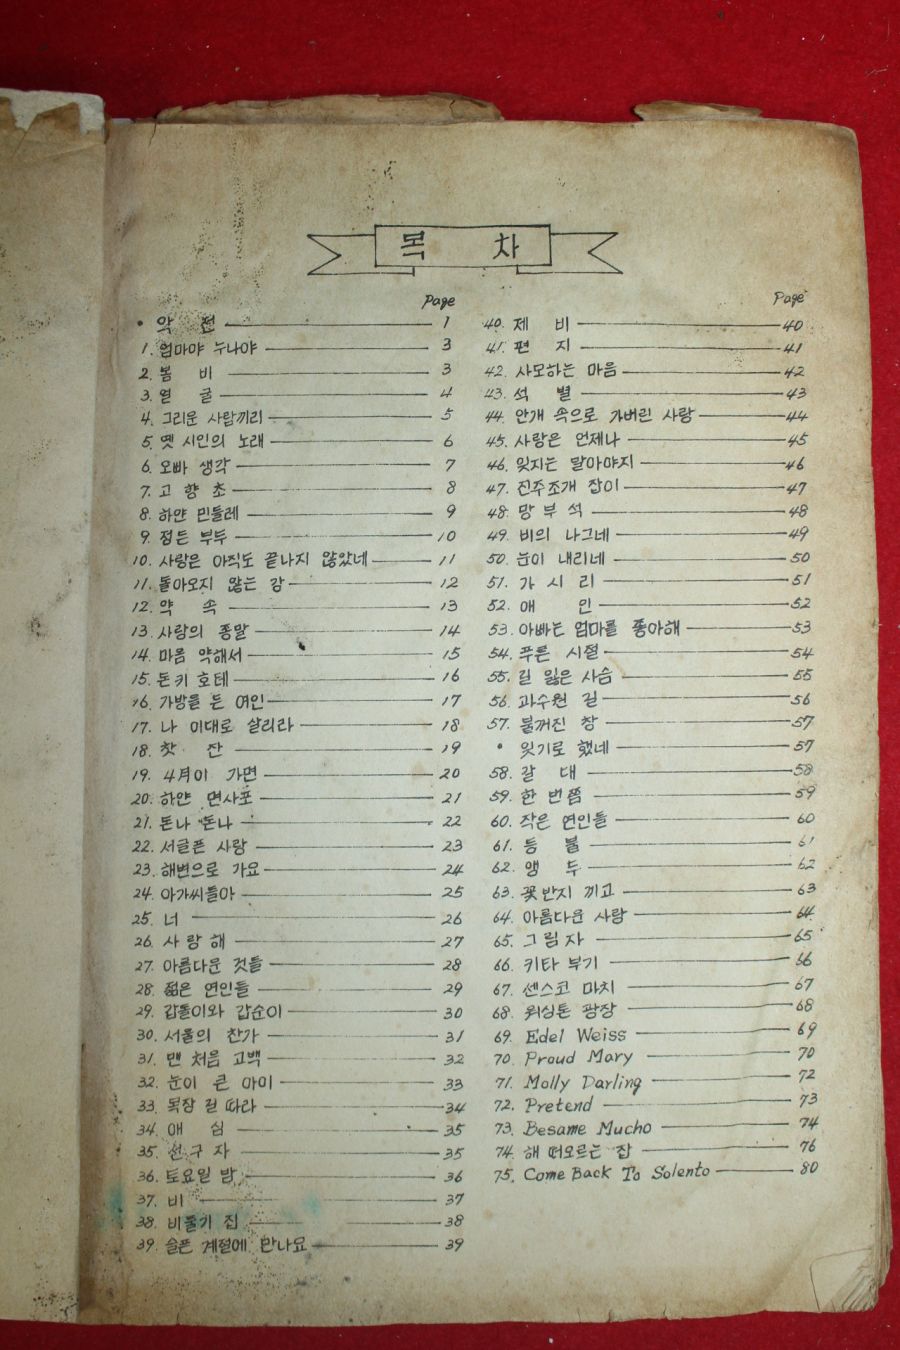 목 차
Page
• 악 전 1
1. 엄마야 누나야 3
2. 봄 비 3
3. 얼 굴 4
4. 그리운 사람끼리 5
5. 옛 시인의 노래 6
6. 오빠 생각 7
7. 고 향 초 8
8. 하얀 민들레 9
9. 정든 부두 10
10. 사랑은 아직도 끝나지 않았네 11
11. 돌아오지 않는 강 12
12. 약 속 13
13. 사랑의 종말 14
14. 마음 약해서 15
15. 돈키호테 16
16. 가방을 든 여인 17
17. 나 이대로 살리라 18
18. 찻 잔 19
19. 4月이 가면 20
20. 하얀 면사포 21
21. 돈나 돈나 22
22. 서글픈 사랑 23
23. 해변으로 가요 24
24. 아가씨들아 25
25. 너 26
26. 사랑해 27
27. 아름다운 것들 28
28. 젊은 연인들 29
29. 갑돌이와 갑순이 30
30. 서울의 찬가 31
31. 맨 처음 고백 32
32. 눈이 큰 아이 33
33. 목장 길 따라 34
34. 애 심 35
35. 선구자 35
36. 토요일 밤 36
37. 비 37
38. 비둘기 집 38
39. 슬픈 계절에 만나요 39
Page
40. 제 비 40
41. 편 지 41
42. 사모하는 마음 42
43. 석 별 43
44. 안개 속으로 가버린 사랑 44
45. 사랑은 언제나 45
46. 잊지는 말아야지 46
47. 진주조개 잡이 47
48. 망부석 48
49. 비의 나그네 49
50. 눈이 내리네 50
51. 가시리 51
52. 애 인 52
53. 아빠는 엄마를 좋아해 53
54. 푸른 시절 54
55. 길 잃은 사슴 55
56. 과수원 길 56
57. 불꺼진 창 57
• 잊기로 했네 57
58. 갈 대 58
59. 한 번쯤 59
60. 작은 연인들 60
61. 등 불 61
62. 앵 두 62
63. 꽃반지 끼고 63
64. 아름다운 사랑 64
65. 그림자 65
66. 키타 부기 66
67. 센스코 마치 67
68. 워싱톤 광장 68
69. Edel Weiss 69
70. Proud Mary 70
71. Molly Darling 72
72. Pretend 73
73. Besame Mucho 74
74. 해 떠오르는 집 76
75. Come Back To Solento 80